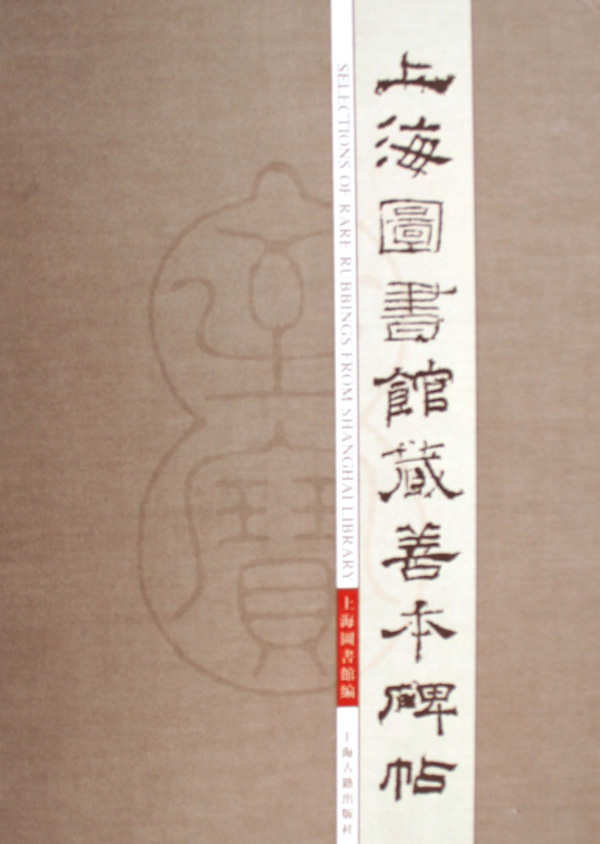 上海圖書館藏善本碑帖
SELECTIONS OF RARE RUBBINGS FROM SHANGHAI LIBRARY
上海圖書館編
上海古籍出版社